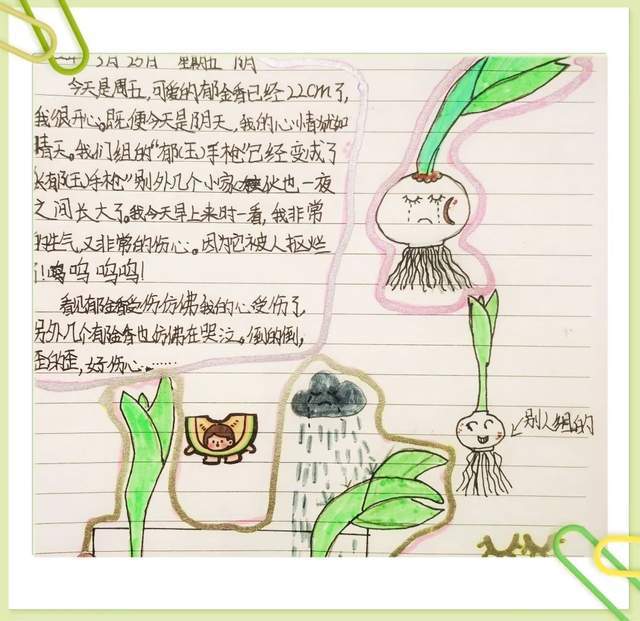 3月25日 星期五 阴
今天是周五,可爱的郁金香已经22cm了,
我很开心。既便今天是阴天,我的心情犹如
晴天。我们组的"郁(玉)手枪"已经变成了
长郁(玉)手枪"别外几个小家伙也一夜
之间长大了。我今天早上来时一看,我非常
的生气,又非常的伤心。因为它被人抠烂
了!呜呜呜呜!
看见郁金香受伤仿佛我的心受伤了,
另外几个郁金香也仿佛在哭泣。倒的倒,
歪的歪,好伤心……
别人组的